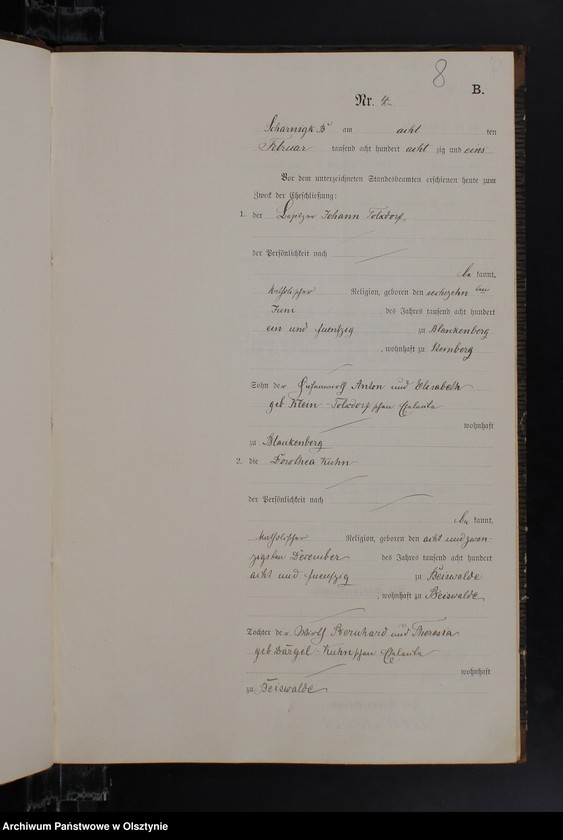 8
B.
Nr. 4
Scharnigk am acht ten
Februar tausend acht hundert acht zig und eins
Vor dem unterzeichneten Standesbeamten erschienen heute zum
Zweck der Eheschließung:
1. der Besitzer Johann Tolxdorf,
der Persönlichkeit nach
be kannt,
katholischer Religion, geboren den sechszehn ten
Juni des Jahres tausend acht hundert
ein und fuenfzig zu Blankenberg
, wohnhaft zu Sternberg
Sohn der Anton und Elisabeth
geb Klein - Tolxdorf schen Eheleute
wohnhaft
zu Blankenberg
2. die Dorothea Kuhn
der Persönlichkeit nach
be kannt,
katholischer Religion, geboren den acht undzwan-
zigsten December des Jahres tausend acht hundert
acht und fuenfzig zu Beiswalde
, wohnhaft zu Beiswalde
Tochter der Bernhard und Theresia
geb Bärgel - Kuhn schen Eheleute
wohnhaft
zu Beiswalde
Archiwum Państwowe w Olsztynie